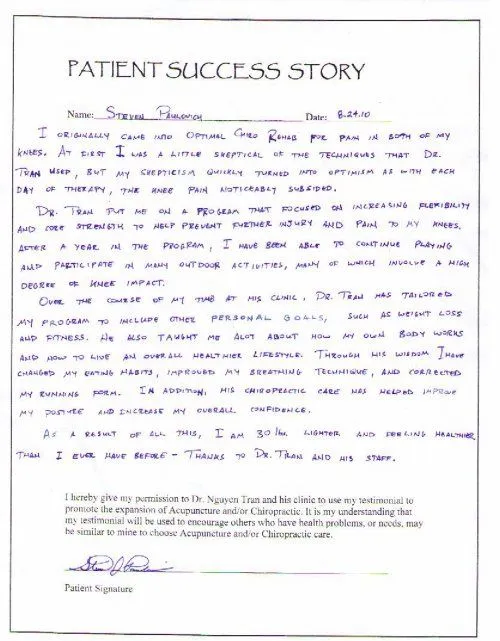 PATIENT SUCCESS STORY
Name: STEVEN PAVLOVICH Date: 8.24.10
I ORIGINALLY CAME INTO OPTIMAL CHIRO REHAB FOR PAIN IN BOTH OF MY
KNEES. AT FIRST I WAS A LITTLE SKEPTICAL OF THE TECHNIQUES THAT DR.
TRAN USED, BUT MY SKEPTICISM QUICKLY TURNED INTO OPTIMISM AS WITH EACH
DAY OF THERAPY, THE KNEE PAIN NOTICEABLY SUBSIDED.
DR. TRAN PUT ME ON A PROGRAM THAT FOCUSED ON INCREASING FLEXIBILITY
AND CORE STRENGTH TO HELP PREVENT FURTHER INJURY AND PAIN TO MY KNEES.
AFTER A YEAR IN THE PROGRAM, I HAVE BEEN ABLE TO CONTINUE PLAYING
AND PARTICIPATE IN MANY OUTDOOR ACTIVITIES, MANY OF WHICH INVOLVE A HIGH
DEGREE OF KNEE IMPACT.
OVER THE COURSE OF MY TIME AT HIS CLINIC, DR. TRAN HAS TAILORED
MY PROGRAM TO INCLUDE OTHER PERSONAL GOALS, SUCH AS WEIGHT LOSS
AND FITNESS. HE ALSO TAUGHT ME ALOT ABOUT HOW MY OWN BODY WORKS
AND HOW TO LIVE AN OVERALL HEALTHIER LIFESTYLE. THROUGH HIS WISDOM I HAVE
CHANGED MY EATING HABITS, IMPROVED MY BREATHING TECHNIQUE, AND CORRECTED
MY RUNNING FORM. IN ADDITION, HIS CHIROPRACTIC CARE HAS HELPED IMPROVE
MY POSTURE AND INCREASE MY OVERALL CONFIDENCE.
AS A RESULT OF ALL THIS, I AM 30 lbs. LIGHTER AND FEELING HEALTHIER
THAN I EVER HAVE BEFORE - THANKS TO DR. TRAN AND HIS STAFF.
I hereby give my permission to Dr. Nguyen Tran and his clinic to use my testimonial to
promote the expansion of Acupuncture and/or Chiropractic. It is my understanding that
my testimonial will be used to encourage others who have health problems, or needs, may
be similar to mine to choose Acupuncture and/or Chiropractic care.
Patient Signature